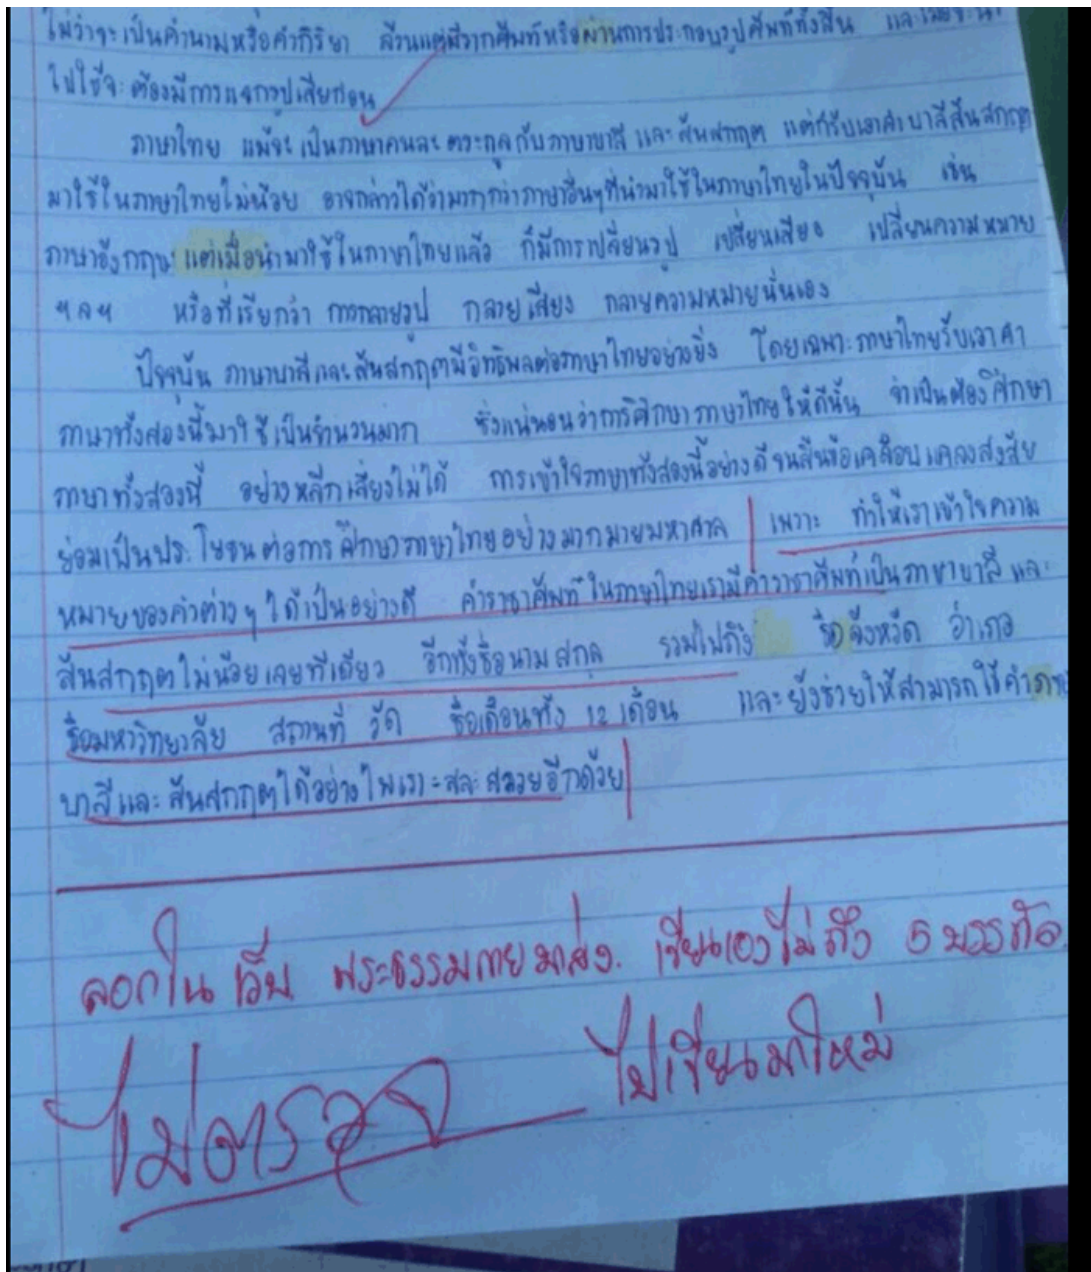 ไม่ว่าจะเป็นคำนามหรือคำกิริยา ล้วนแต่มีรากศัพท์หรือผ่านการประกอบรูปศัพท์ทั้งสิ้น และเมื่อจะนำ
ไปใช้จะต้องมีการแจกรูปเสียก่อน
ภาษาไทย แม้จะเป็นภาษาคนละตระกูลกับภาษาบาลี และสันสกฤต แต่ก็รับเอาคำบาลีสันสกฤต
มาใช้ในภาษาไทยไม่น้อย อาจกล่าวได้ว่ามากกว่าภาษาอื่นๆที่นำมาใช้ในภาษาไทยในปัจจุบัน เช่น
ภาษาอังกฤษ แต่เมื่อนำมาใช้ในภาษาไทยแล้ว ก็มีการเปลี่ยนรูป เปลี่ยนเสียง เปลี่ยนความหมาย
ฯลฯ หรือที่เรียกว่า การกลายรูป กลายเสียง กลายความหมายนั่นเอง
ปัจจุบัน ภาษาบาลีและสันสกฤตมีอิทธิพลต่อภาษาไทยอย่างยิ่ง โดยเฉพาะภาษาไทยรับเอาคำ
ภาษาทั้งสองนี้มาใช้เป็นจำนวนมาก ซึ่งแน่นอนว่าการศึกษาภาษาไทยให้ดีนั้น จำเป็นต้องศึกษา
ภาษาทั้งสองนี้ อย่างหลีกเลี่ยงไม่ได้ การเข้าใจภาษาทั้งสองนี้อย่างดีจนสิ้นข้อเคลือบแคลงสงสัย
ย่อมเป็นประโยชนต่อการศึกษาภาษาไทยอย่างมากมายมหาศาล เพราะ ทำให้เราเข้าใจความ
หมายของคำต่างๆ ได้เป็นอย่างดี คำราชาศัพท์ในภาษาไทยเรามีคำราชาศัพท์เป็นภาษาบาลี และ
สันสกฤตไม่น้อยเลยทีเดียว อีกทั้งชื่อนามสกุล รวมไปถึง ชื่อจังหวัด อำเภอ
ชื่อมหาวิทยาลัย สถานที่ วัด ชื่อเดือนทั้ง 12 เดือน และยังช่วยให้สามารถใช้คำ
บาลีและสันสกฤตได้อย่างไพเราะสละสลวยอีกด้วย
ลอกใน เว็บ พระธรรมกายมาส่ง. เขียนเองไม่ถึง 5 บรรทัด
ไม่ตรวจ ไปเขียนมาใหม่